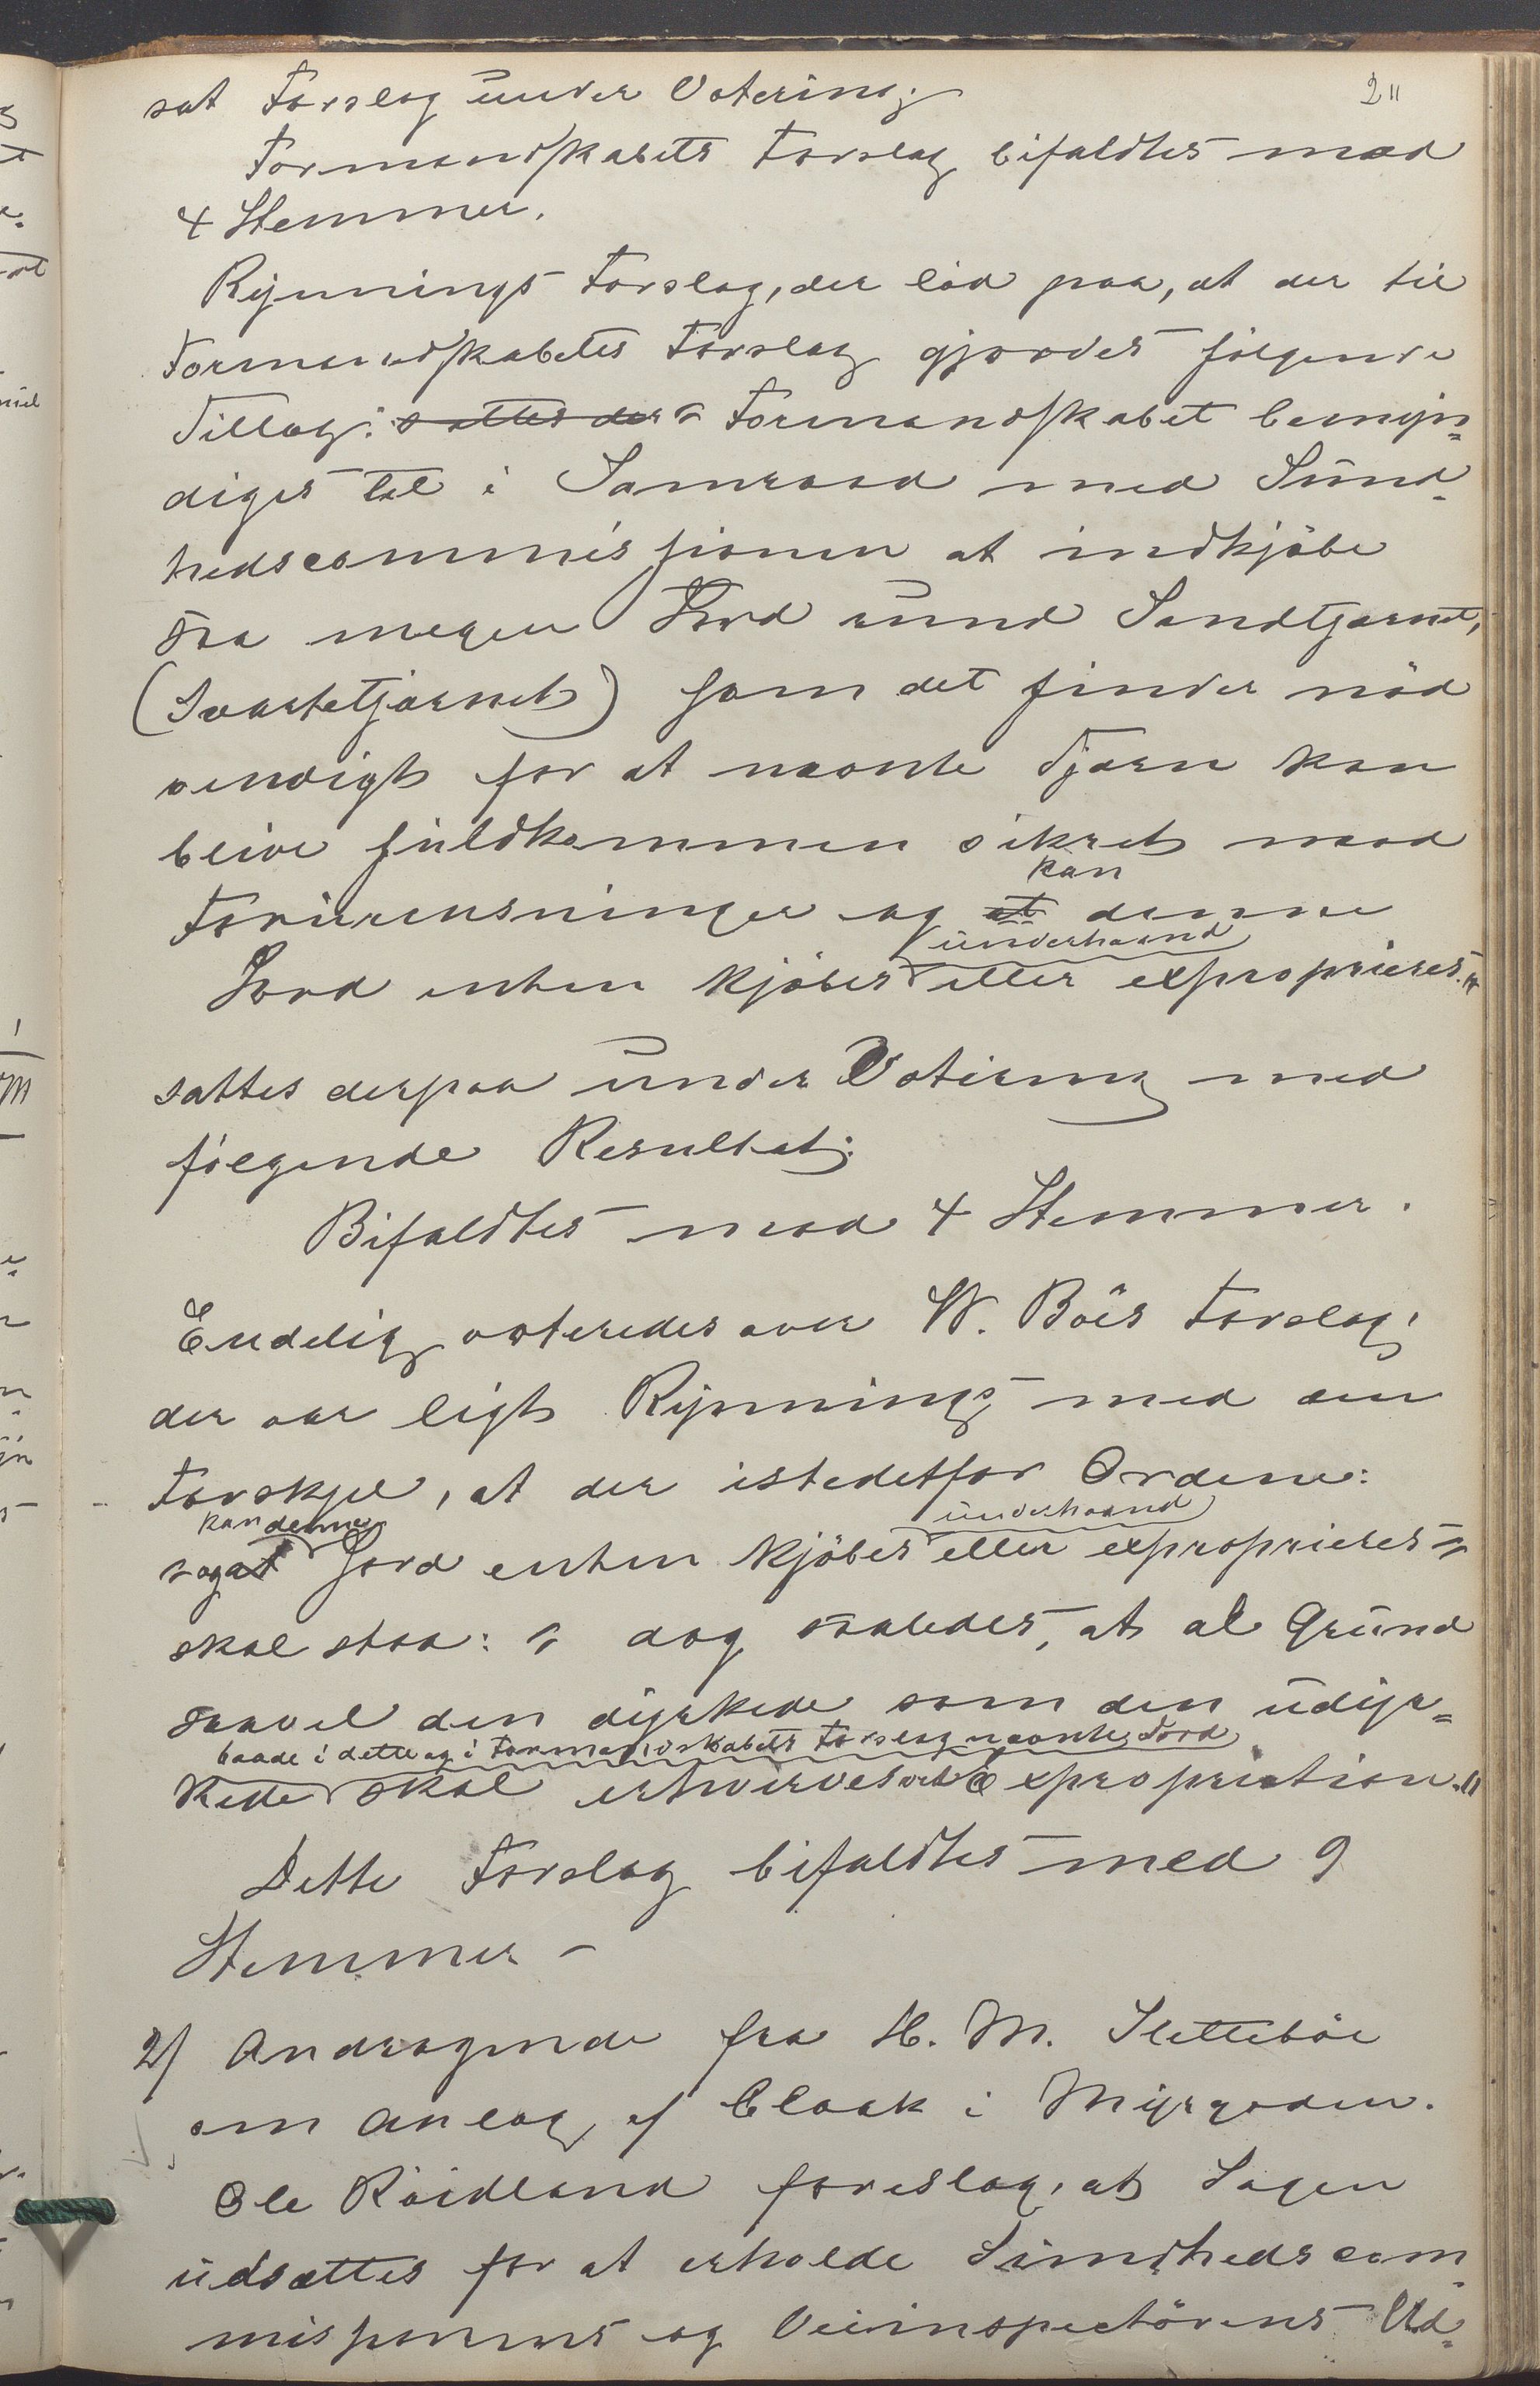 211
sat Forslag under Votering.
Formandskabets Forslag bifaldtes mod
4 Stemmer.
Rynnings Forslag, der löd paa, at der til
Formandskabets Forslag gjordes følgende
Tillæg: sattes der "Formandskabet bemyn=
diges til i Samraad med Sund-
hedscommissionen at indkjöbe
saa megen Jord rund Sandtjernet,
(Svartetjernet) som det finder nöd
vendigt for at nævnte Tjern kan
blive fuldkommen sikret mod
kan
Forurensninger og at denne
underhaand
Jord enten kjöbes eller exproprieres."
sattes derpaa under Votering med
følgende Resultat:
Bifaldtes mod 4 Stemmer.
Endelig voteredes over W. Böes Forslag,
der var ligt Rynnings med den
Forskjel, at der istedetfor Ordene:
kan denne underhaand
"og at Jord enten kjöbes eller exproprieres"
skal staa: "dog saaledes, at al Grund
saavel den dyrkede som den udyr=
baade i dette og i Formandskabets Forslag nævnte Jord
kede skal erhverves ved Expropriation."
Dette Forslag bifaldtes med 9
Stemmer -
2/ Andragende fra H. M. Sletteböe
om Anlæg af Cloak i Myrgaden.
Ole Röidland foreslog, at Sagen
udsættes for at erholde Sundhedscom-
missionens og Veiinspectörens Ud=